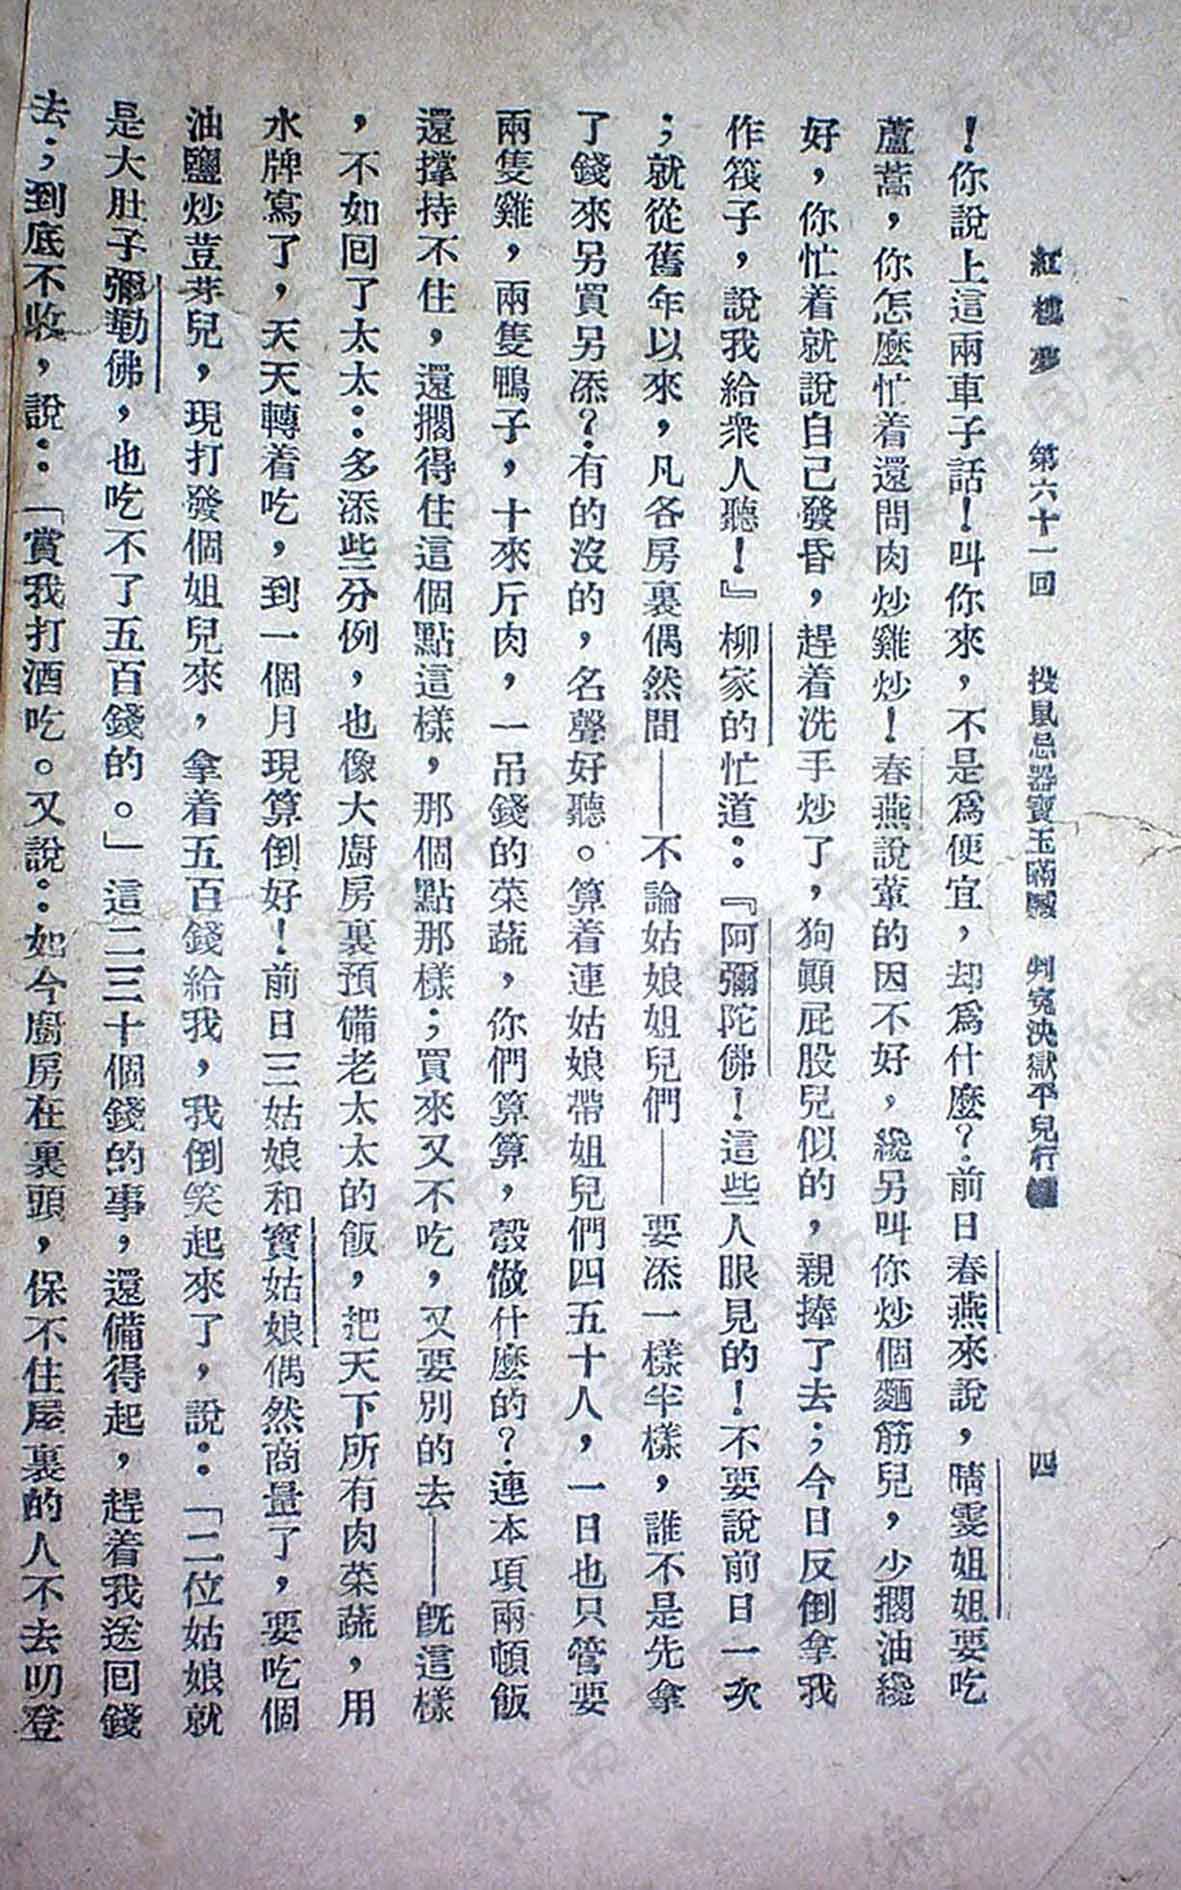 紅樓夢　第六十一回　投鼠忌器寶玉瞞贓　判寃決獄平兒行　四
！你說上這兩車子話！叫你來，不是爲便宜，却爲什麼？前日春燕來說，晴雯姐姐要吃
蘆蒿，你怎麼忙着還問肉炒雞炒！春燕說葷的因不好，纔另叫你炒個麵筋兒，少擱油纔
好，你忙着就說自己發昏，趕着洗手炒了，狗顚屁股兒似的，親捧了去；今日反倒拿我
作筏子，說我給衆人聽！』柳家的忙道：『阿彌陀佛！這些人眼見的！不要說前日一次
；就從舊年以來，凡各房裏偶然間——不論姑娘姐兒們——要添一樣半樣，誰不是先拿
了錢來另買另添？有的沒的，名聲好聽。算着連姑娘帶姐兒們四五十人，一日也只管要
兩隻雞，兩隻鴨子，十來斤肉，一吊錢的菜蔬，你們算算，彀做什麼的？連本項兩頓飯
還撑持不住，還擱得住這個點這樣，那個點那樣；買來又不吃，又要別的去——旣這樣
，不如回了太太：多添些分例，也像大廚房裏預備老太太的飯，把天下所有肉菜蔬，用
水牌寫了，天天轉着吃，到一個月現算倒好！前日三姑娘和寳姑娘偶然商量了，要吃個
油鹽炒荳芽兒，現打發個姐兒來，拿着五百錢給我，我倒笑起來了，說：「二位姑娘就
是大肚子彌勒佛，也吃不了五百錢的。」這二三十個錢的事，還備得起，趕着我送回錢
去；到底不收，說：「賞我打酒吃。又說：如今廚房在裏頭，保不住屋裏的人不去叨登